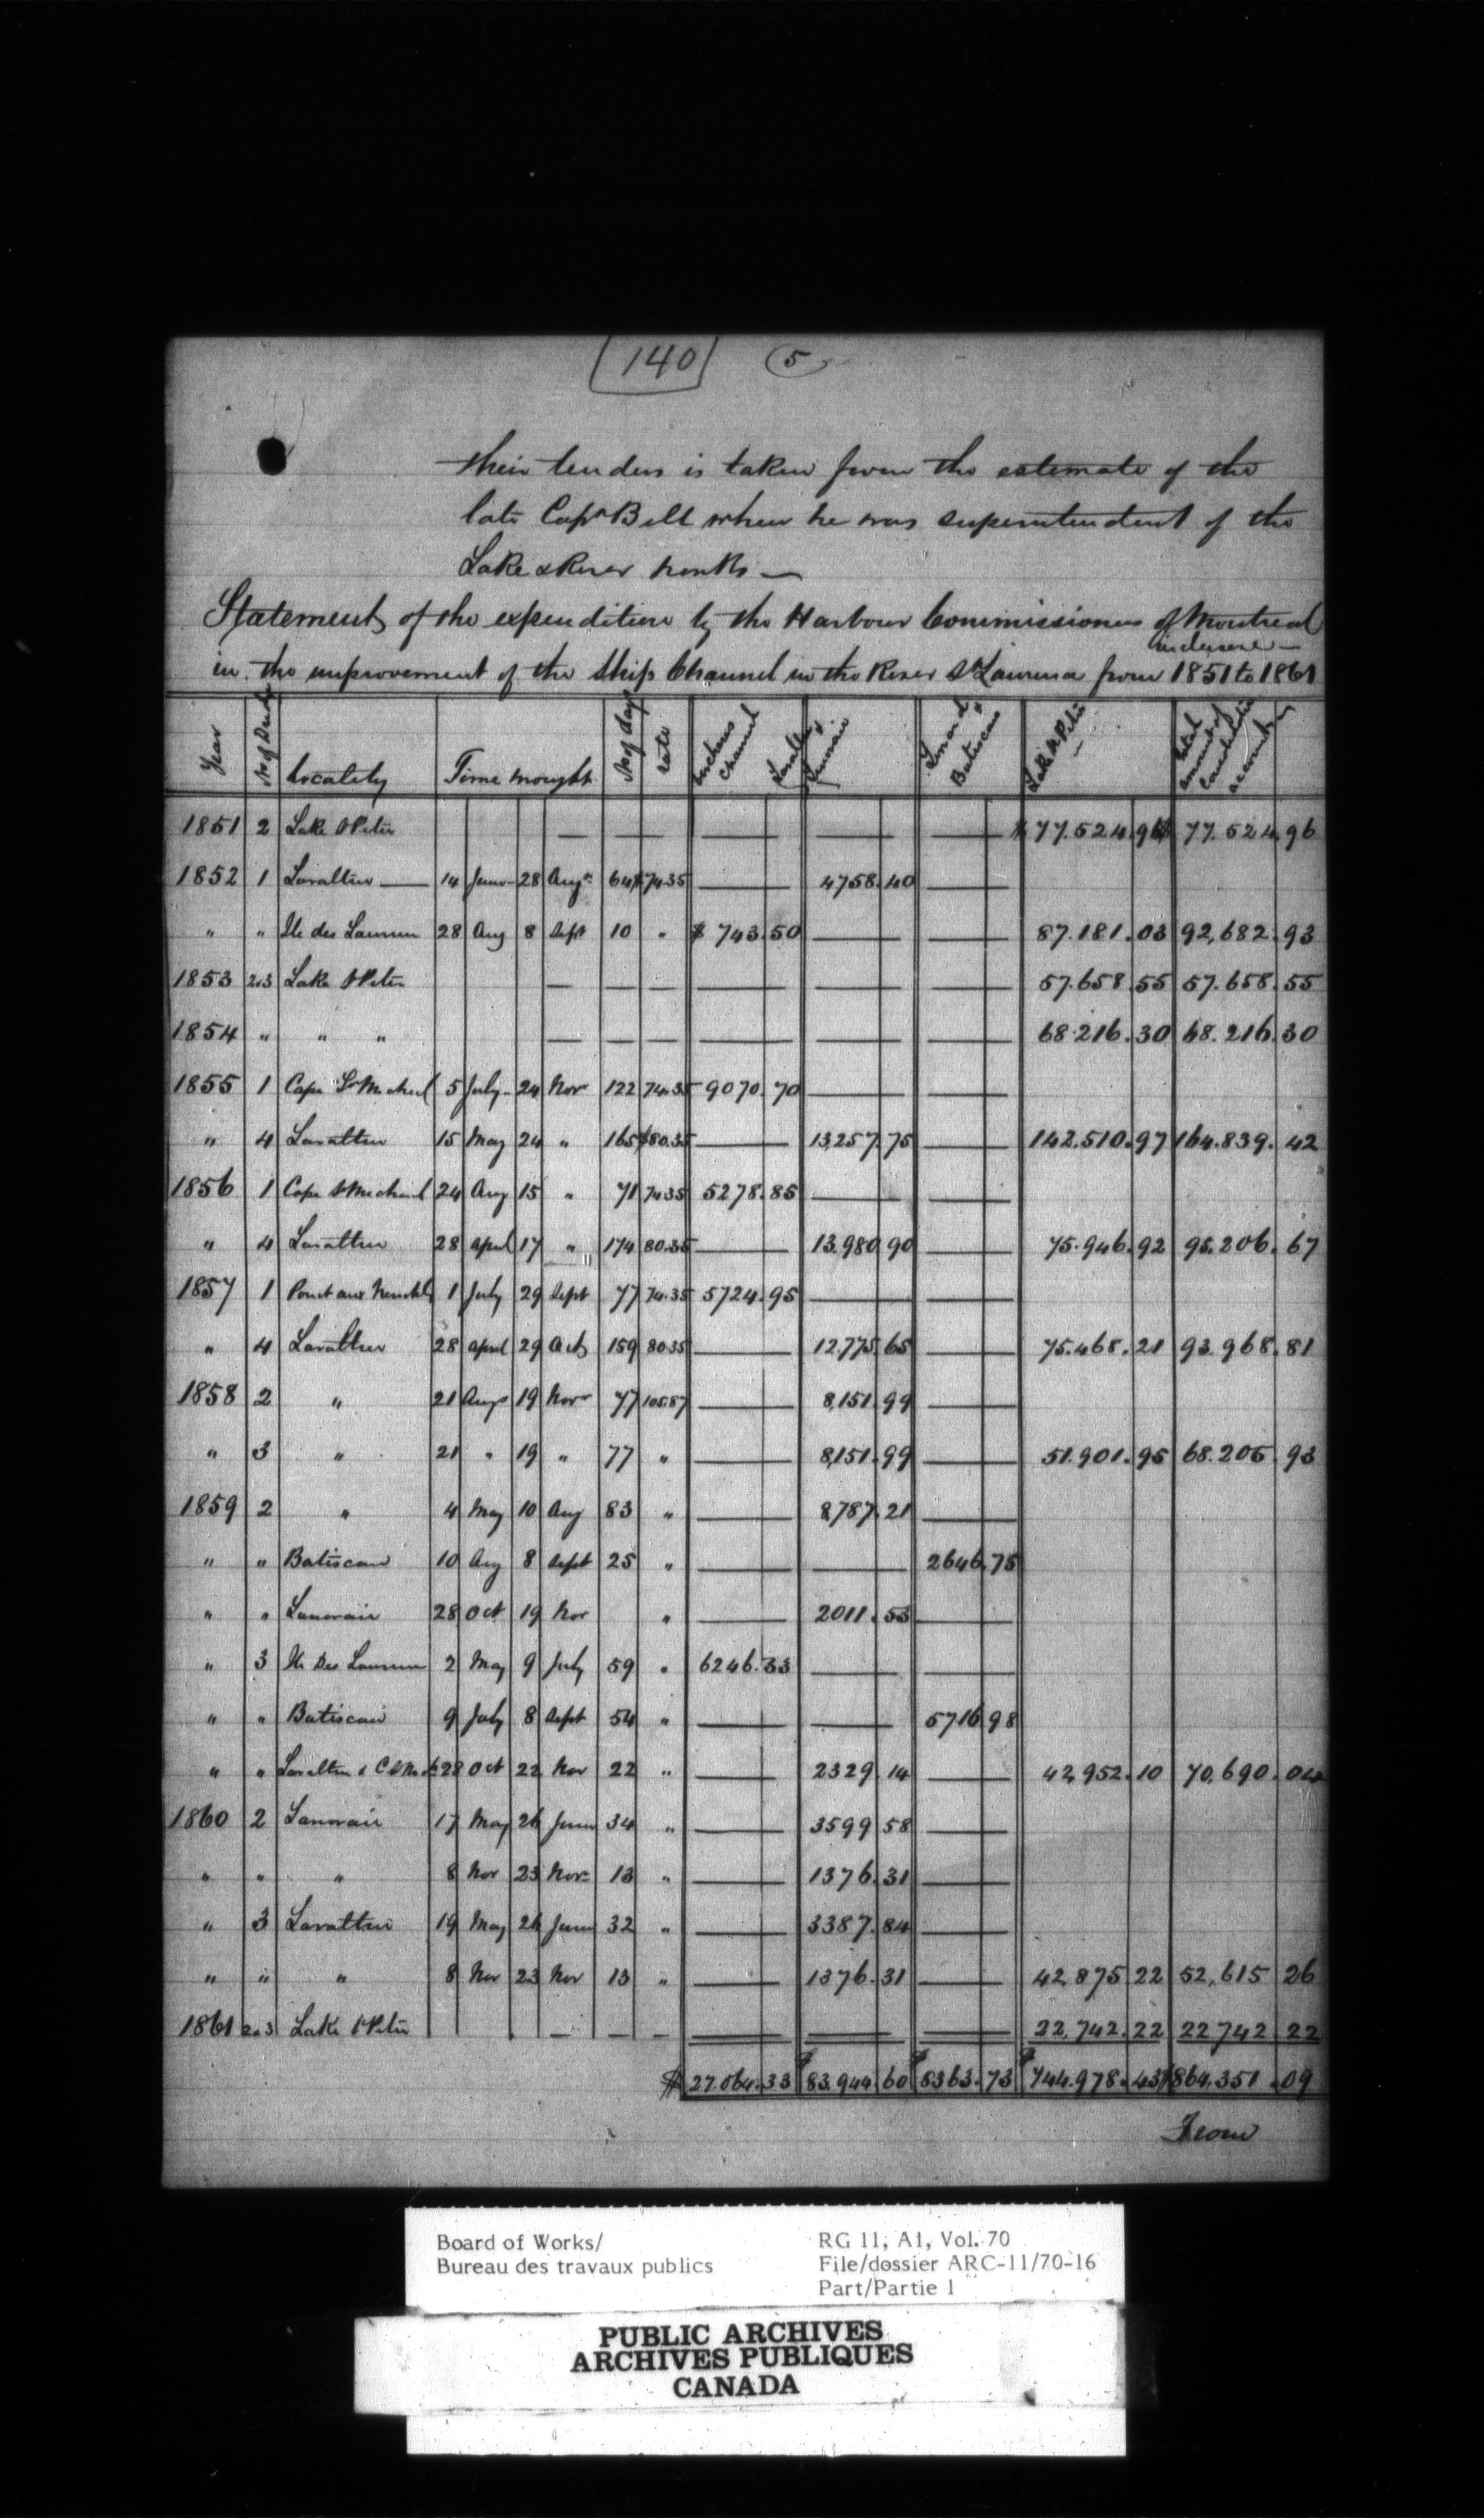 140 5
their tenders is taken from the estimate of the
late Capn Bell when he was superintendent of the
Lake & River works —
Statement of the expenditure by the Harbour Commissioners of Montreal
inclusive —
in the improvement of the Ship Channel in the River St Lawrence from 1851 to 1861
Year No of Dredge Locality Time wrought No of days rate Channel Lavaltrie & Lanoraie Batiscan Lake St Peter total amount of
1851 2 Lake St Peter — — — — — — $ 77.524.96 $ 77.524.96
1852 1 Lavaltrie — 14 June - 28 Augt 64 $74.35 — 4758.40 —
" " Ile des Laurier 28 Aug 8 Sept 10 " $ 743.50 — — 87.181.03 92,682.93
1853 2&3 Lake St Peter — — — — — — 57.658.55 57.658.55
1854 " " " — — — — — — 68.216.30 68.216.30
1855 1 Cape St Michael 5 July - 24 Nov 122 74.35 9070.70 — —
" 4 Lavaltrie 15 May 24 " 165 $80.35 — 13,257.75 — 142.510.97 164.839.42
1856 1 Cape St Michael 24 Aug 15 " 71 74.35 5278.85 — —
" 4 Lavaltrie 28 april 17 " 174 80.35 — 13,980.90 — 75.946.92 95.206.67
1857 1 1 July 29 Sept 77 74.35 5724.95 — —
" 4 Lavaltrie 28 april 29 Oct 159 80.35 — 12,775.65 — 75.468.21 93.968.81
1858 2 " 21 Aug 19 Nov 77 105.87 — 8,151.99 —
" 3 " 21 " 19 " 77 " — 8,151.99 — 51.901.95 68.205.93
1859 2 " 4 May 10 Aug 83 " — 8,787.21 —
" " Batiscan 10 Aug 8 Sept 25 " — — 2646.75
" " Lanoraie 28 Oct 19 Nov " — 2011.53 —
" 3 Ile Des Laurier 2 May 9 July 59 " 6246.33 — —
" " Batiscan 9 July 8 Sept 54 " — — 5716.98
" " Lavaltrie & C St 28 Oct 22 Nov 22 " — 2329.14 — 42,952.10 70,690.04
1860 2 Lanoraie 17 May 26 June 34 " — 3599.58 —
" " " 8 Nov 23 Nov 13 " — 1376.31 —
" 3 Lavaltrie 19 May 26 June 32 " — 3387.84 —
" " " 8 Nov 23 Nov 13 " — 1376.31 — 42,875.22 52,615.26
1861 2&3 Lake St Peter — — — — — — 22,742.22 22742.22
$ 27.064.33 $ 83,944.60 $ 8363.73 $ 744.978.43 $ 864,351.09
From
Board of Works/
Bureau des travaux publics
RG 11, A1, Vol. 70
File/dossier ARC-11/70-16
Part/Partie 1
PUBLIC ARCHIVES
ARCHIVES PUBLIQUES
CANADA